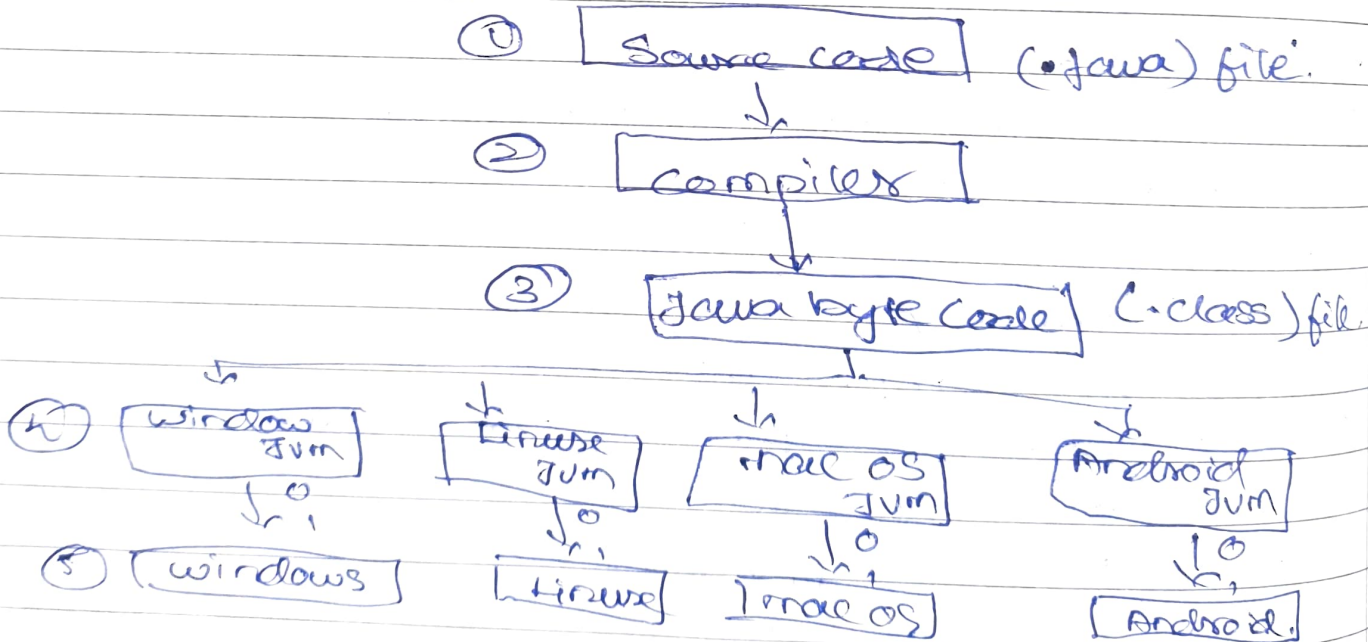 ① Source code (.Java) file.
② compiler
③ Java byte Code (.class) file.
④ window JVM Linuxe JVM mac OS JVM Android JVM
0, 0, 0, 0,
⑤ windows Linuxe mac OS Android.